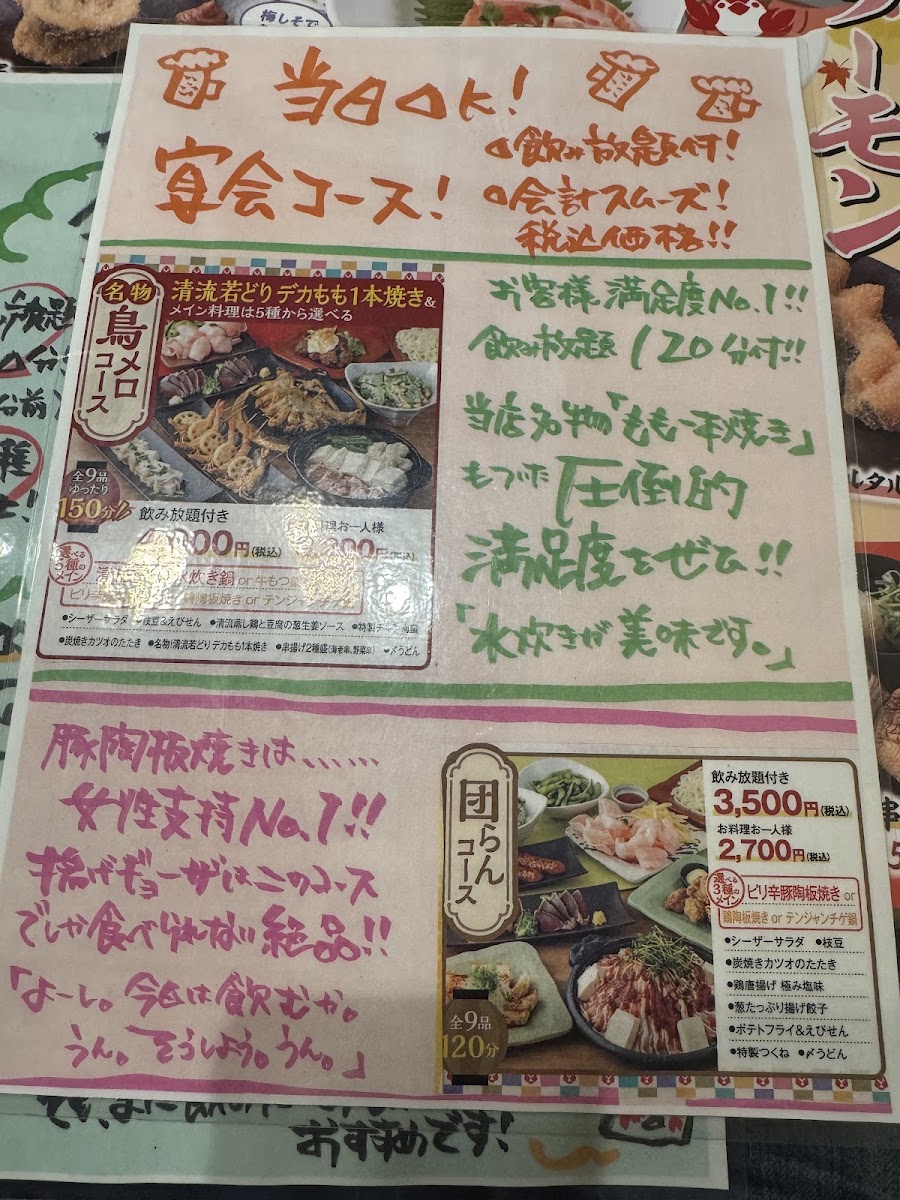 梅しそで
当日OK!
宴会コース!
飲み放題付!
会計スムーズ!
税込価格!!
ーモン
名物
鳥メロコース
清流若どり デカもも1本焼き&
メイン料理は5種から選べる
全9品
ゆったり
150分
飲み放題付き
円(税込)
理お一人様
円(税込)
選べる5種のメイン
炊き鍋 or 牛もつ
ピリ辛
鶏陶板焼き or テンジャンチゲ鍋
•シーザーサラダ •枝豆&えびせん •清流蒸し鶏と豆腐の葱生姜ソース •特製チ
•炭焼きカツオのたたき •名物!清流若どりデカもも1本焼き •串揚げ2種盛(海老串、野菜串) •〆うどん
お客様満足度No.1!!
飲み放題120分付!!
当店名物「もも一本焼き」
もついた圧倒的
満足度をぜひ!!
「水炊きが美味です。」
豚陶板焼きは......
女性支持No.1!!
揚げギョーザはこのコース
でしか食べられない絶品!!
「よーし。今日は飲むか。
うん。そうしよう。うん。」
団らんコース
全9品
120分
飲み放題付き
3,500円(税込)
お料理お一人様
2,700円(税込)
選べる3種のメイン
ピリ辛豚陶板焼き or
鶏陶板焼き or テンジャンチゲ鍋
•シーザーサラダ •枝豆
•炭焼きカツオのたたき
•鶏唐揚げ 極み塩味
•葱たっぷり揚げ餃子
•ポテトフライ&えびせん
•特製つくね •〆うどん
おすすめです!